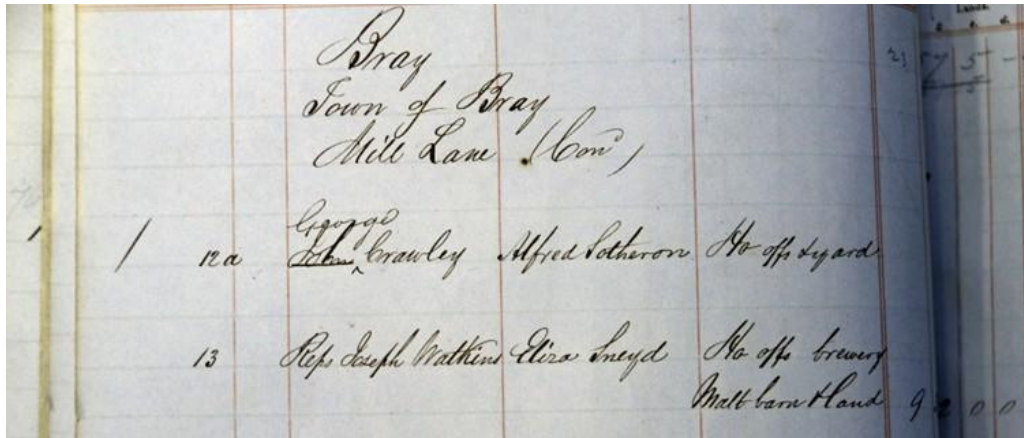 Bray
Town of Bray
Mill Lane (Cond)
George
/ 12a John ^ Crawley Alfred Sotheron Ho offs & yard
13 Reps Joseph Watkins Eliza Sneyd Ho offs brewery
Malt barn & land 9